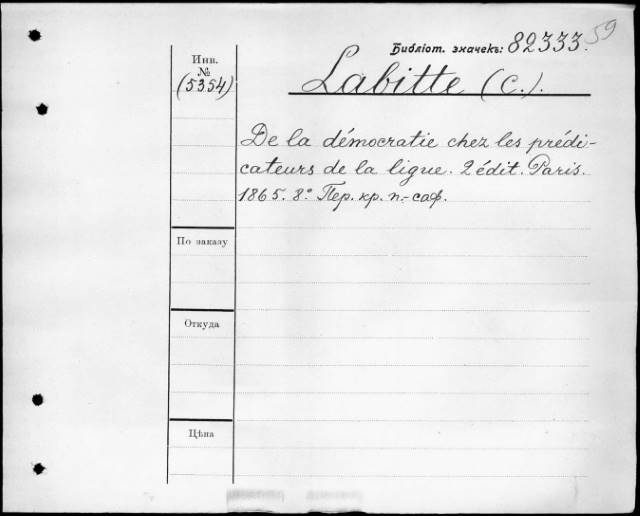 Библіот. значекъ: 82333. 59
Инв.
№
(5354)
Labitte (C.).
De la démocratie chez les prédi-
cateurs de la ligue. 2 édit. Paris.
1865. 8° Пер. кр. п.-саф.
По заказу
Откуда
Цѣна